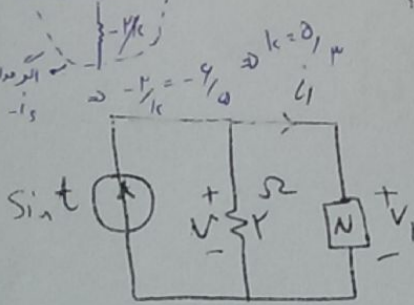 -۲/k
-i_s
⇒ -۲/k = -۶/۵ ⇒ k = ۵/۳
i₁
Sin t
+ V -
۲ Ω
N
+ V₁ -